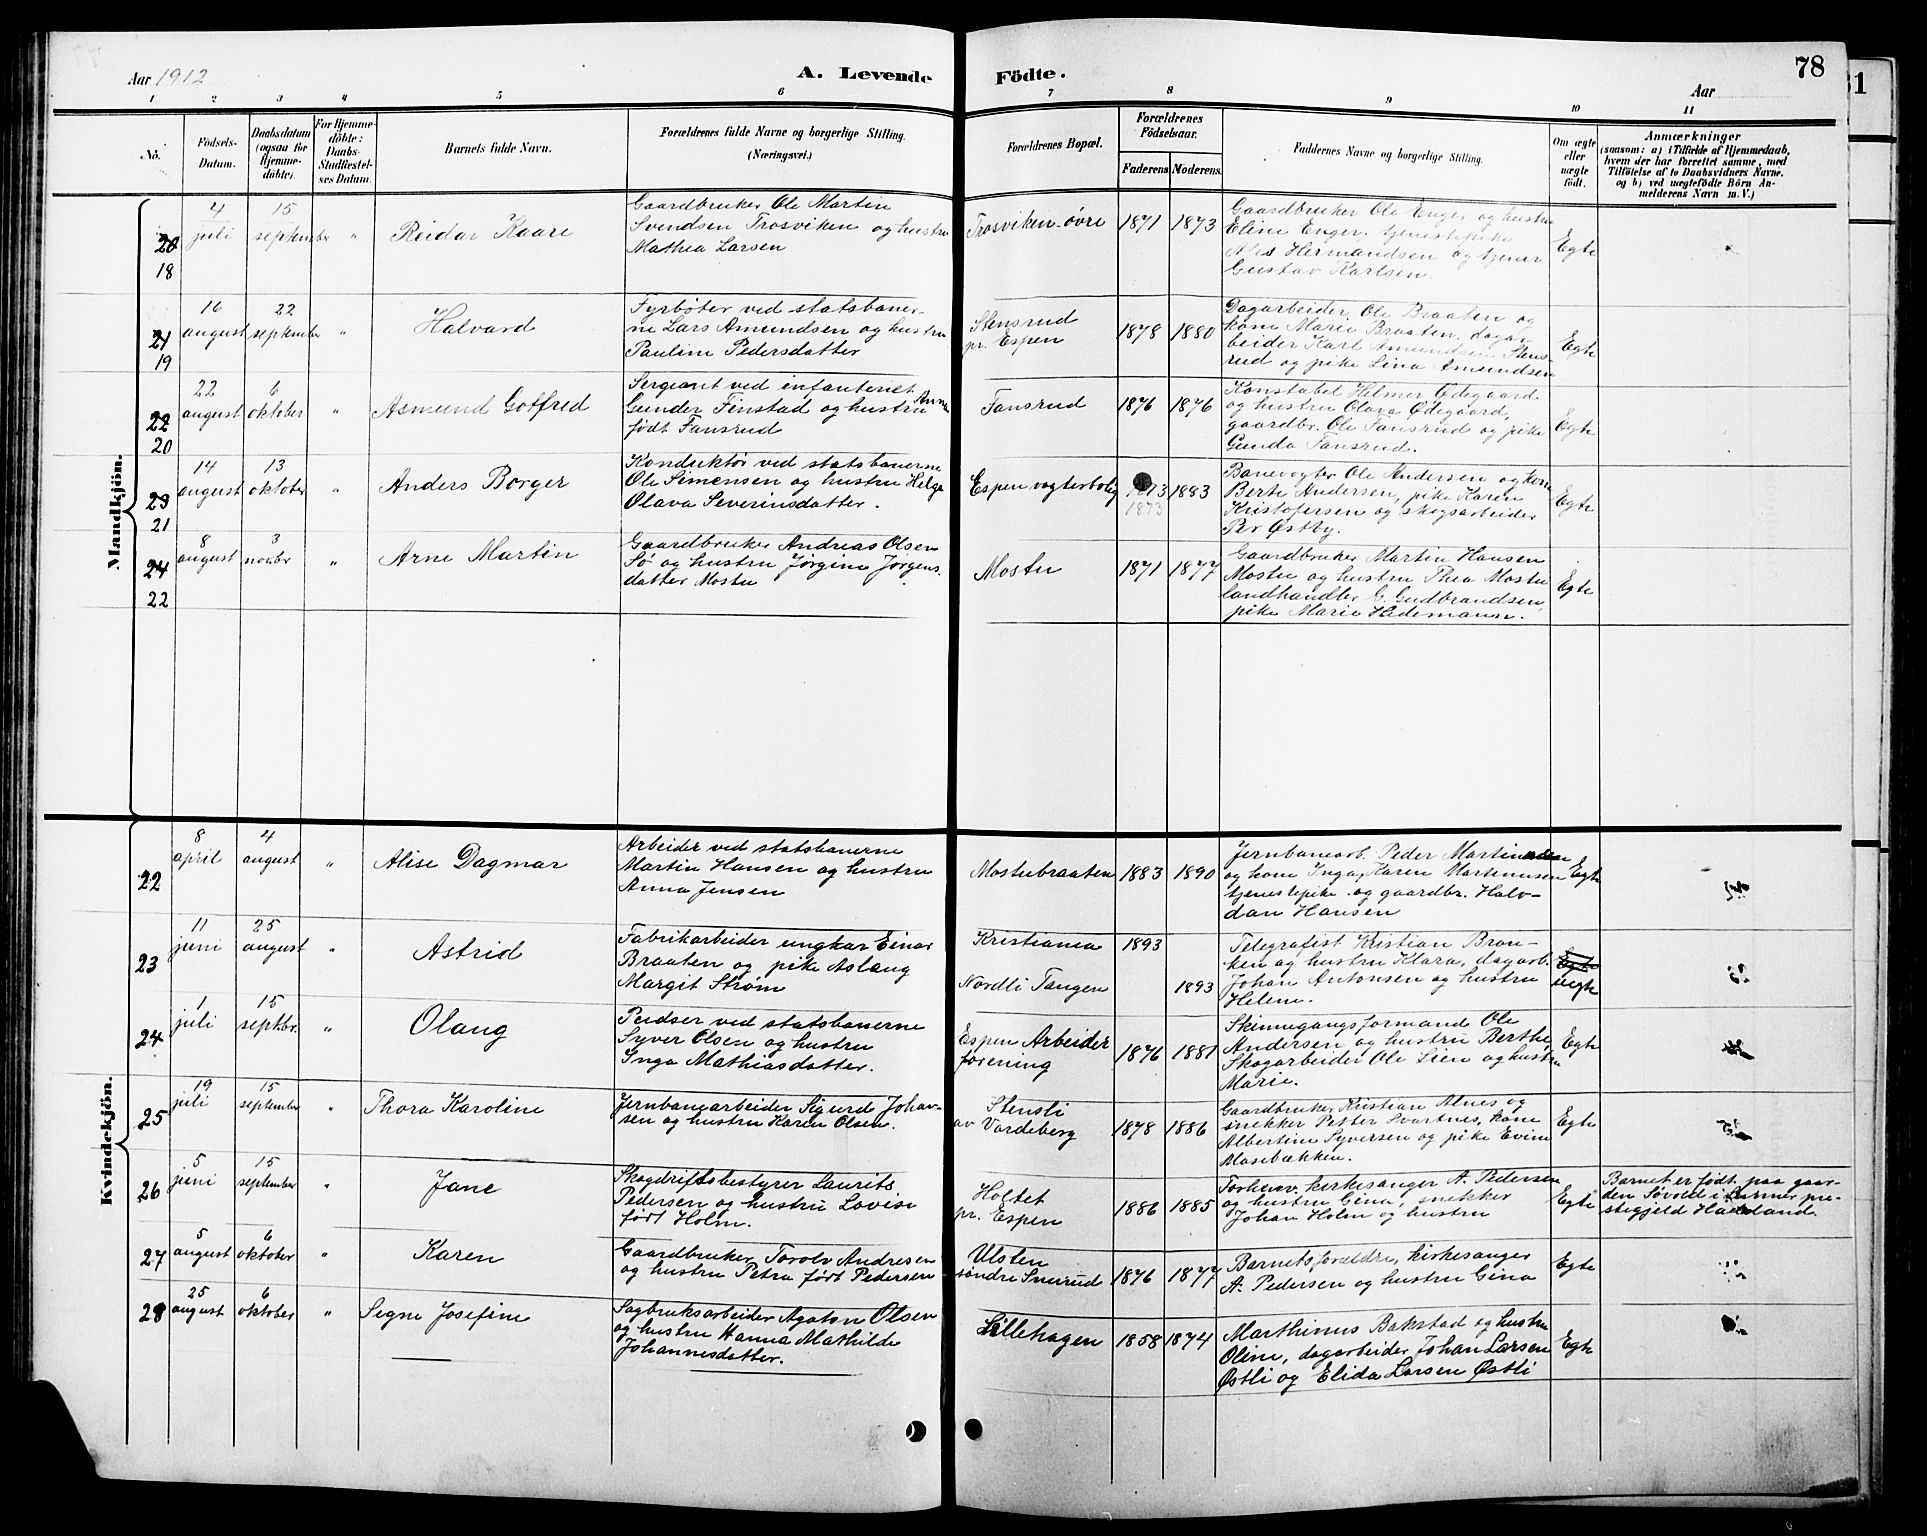 Aar 1912
A. Levende Födte.
78
Aar
1 2 3 4 5 6 7 8 9 10 11
No.
Födsels-
Datum.
Daabsdatum
(ogsaa for
Hjemme-
döbte).
For Hjemme-
döbte:
Daabs-
Stadfæstel-
ses Datum.
Barnets fulde Navn.
Forældrenes fulde Navne og borgerlige Stilling.
(Næringsvei.)
Forældrenes Bopæl.
Forældrenes
Födselsaar.
Faderens Moderens.
Faddernes Navne og borgerlige Stilling.
Om ægte
eller
uægte
født.
Anmærkninger
(saasom: a) i Tilfælde af Hjemmedaab,
hvem der har forrettet samme, med
Tilföielse af to Daabsvidners Navne.
og b) ved uægtefödte Börn An-
melderens Navn m. V.)
Mandkjön.
20
18
4
juli
15
september
"
Reidar Kaare
Gaardbruker Ole Martin
Svendsen Trosviken og hustru
Mathea Larsen
Trosviken øvre
1871
1873
Gaardbruker Ole Enger og hustru
Eline Enger. tjenestepike
Hermandsen og tjener
Gustav Karlsen.
Egte
21
19
16
august
22
september
"
Halvard
Fyrbøter ved statsbaner-
ne Lars Amundsen og hustru
Pauline Pedersdatter
Stensrud
pr. Espen
1878
1880
Dagarbeider Ole Braaten og
kone Marie Braaten, dagar-
beider Karl Amundsen Stens-
rud og pike Lina Amundsen
Egte
22
20
22
august
6
oktober
"
Asmund Gotfred
Sergeant ved infanteriet
Gunder Finstad og hustru Anna
født Fansrud
Fansrud
1876
1876
Konstabel Helmer Ødegaard
og hustru Olava Ødegaard,
gaardbr. Ole Fansrud og pike
Gunda Fansrud.
Egte
23
21
14
august
13
oktober
"
Anders Borger
Konduktør ved statsbanerne
Ole Simensen og hustru Helga
Olava Severinsdatter.
Espen vogterbolig
1873
1873
1883
Banevogter Ole Andersen og kone
Berte Andersen, pike Karen
Kristofersen og skogsarbeider
Per Østby.
Egte
24
22
8
august
3
novbr
"
Arne Martin
Gaardbruker Andreas Olsen
Sø og hustru Jørgine Jørgens-
datter Mostu
Mostu
1871
1877
Gaardbruker Martin Hansen
Mostu og hustru Thea Mostu
landhandler G. Gudbrandsen,
pike Marie Hedemann.
Egte
Kvindekjön.
22
8
april
4
august
"
Alise Dagmar
Arbeider ved statsbanerne
Martin Hansen og hustru
Anna Jensen
Mostubraaten
1883
1890
Jernbanearb. Peder Martinusen
og kone Inga, Karen Martinusen
tjenestepike og gaardbr. Halv-
dan Hansen
Egte
23
11
juni
25
august
"
Astrid
Fabrikarbeider ungkar Einar
Braaten og pike Aslaug
Margit Strøm
Kristiania
Nordli Tangen
1893
1893
Telegrafist Kristian Bron-
ken og hustru Klara, dagarb.
Johan Antonsen og hustru
Helene.
Egte
uegte
24
1
juli
15
septbr.
"
Olaug
Pudser ved statsbanerne
Syver Olsen og hustru
Inga Mathiasdatter.
Espen Arbeider
forening
1876
1881
Skinnegangsformand Ole
Andersen og hustru Berthe,
Skogarbeider Ole Lien og hustru
Marie.
Egte
25
19
juli
15
september
"
Thora Karoline
Jernbanearbeider Sigurd Johan-
sen og hustru Karen Olsen.
Stensli
av Vardeberg
1878
1886
Gaardbruker Kristian Alnes og
snekker Petter Svartnes, kone
Albertine Syversen og pike Evine
Mosebækken.
Egte
26
5
juni
15
september
"
Jane
Skogdriftsbestyrer Laurits
Pedersen og hustru Lovise
født Holm.
Holtet
pr. Espen
1886
1885
Forhenv. kirkesanger A. Pedersen
og hustru Gina, snekker
Johan Holm og hustru
Egte
Barnet er født paa gaar-
den Søvold i Lunner pre-
stegjeld Hadeland.
27
5
august
6
oktober
"
Karen
Gaardbruker Torolv Andresen
og hustru Petra født Pedersen
Ulsten
søndre Snurud
1876
1877
Barnets forældre, kirkesanger
A. Pedersen og hustru Gina
Egte
28
25
august
6
oktober
"
Segne Josefine
Sagbruksarbeider Agaton Olsen
og hustru Hanna Mathilde
Johannesdatter.
Lillehagen
1858
1874
Marthinus Bakstad og hustru
Oline, dagarbeider Johan Larsen
Østli og Elida Larsen Østli
Egte